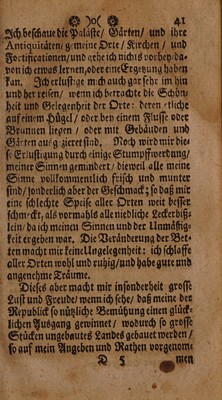 )o( 41
Ich beschaue die Paläste/ Gärten/ und ihre
Antiquitäten/ gemeine Orte/ Kirchen/ und
Fortificationen/ und gehe ich nichts vorbey/ da-
von ich etwas lernen/ oder eine Ergetzung haben
kan. Ich erlustige mich auch gar sehr im hin
und her reisen/ wenn ich betrachte die Schön-
heit und Gelegenheit der Orte: deren etliche
auf einem Hügel/ oder bey einem Flusse oder
Brunnen liegen/ oder mit Gebäuden und
Gärten ausgezieret sind. Noch wird mir die-
se Erlustigung durch einige Stumpffwerdung/
meiner Sinnen gemindert/ dieweil alle meine
Sinne vollkommentlich frisch und munter
sind/ sonderlich aber der Geschmack; so daß mir
eine schlechte Speise aller Orten weit besser
schmeckt, als vormahls alle niedliche Leckerbiß-
lein/ da ich meinen Sinnen und der Unmäßig-
keit ergeben war. Die Veränderung der Bet-
ten macht mir keine Ungelegenheit: ich schlaffe
aller Orten wohl und ruhig/ und habe gute und
angenehme Träume.
Dieses aber macht mir insonderheit grosse
Lust und Freude/ wenn ich sehe/ daß meine der
Republick so nützliche Bemühung einen glück-
lichen Ausgang gewinnet/ wodurch so grosse
Stücken ungebautes Landes gebauet werden/
so auf mein Angeben und Rathen vorgenom-
D 5 men